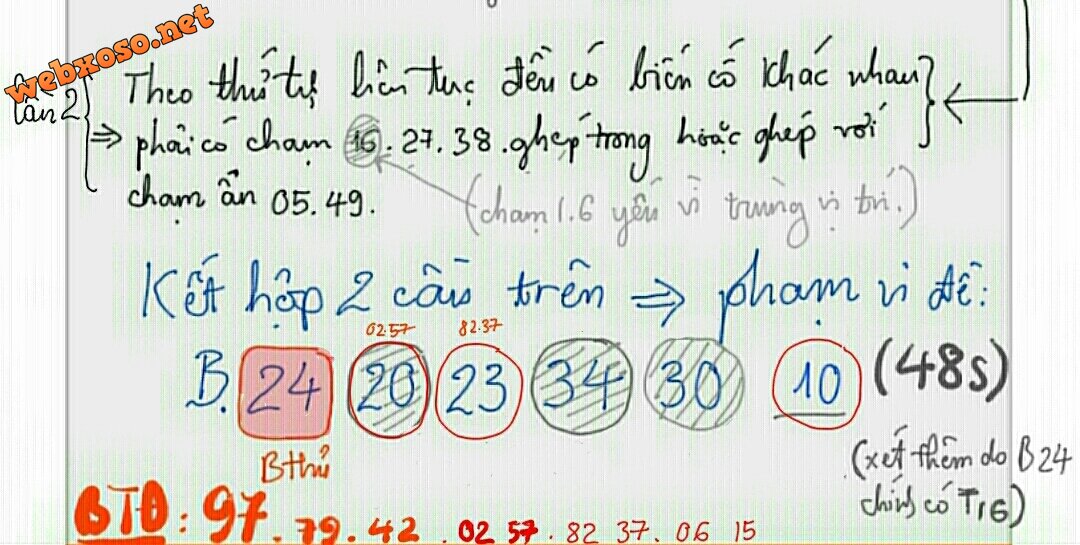 webxoso.net
lần 2
Theo thứ tự liên tục đều có biến cố khác nhau
⇒ phải có chạm 16.27.38.ghép trong hoặc ghép với
chạm ẩn 05.49.
(chạm 1.6 yếu vì trùng vị trí.)
Kết hợp 2 cầu trên ⇒ phạm vi đề:
02.57 82.37
B. 24 20 23 34 30 10 (48s)
Bthủ
(xét thêm do B24
chính có T16)
BTĐ: 97.79.42.02 57.82 37.06 15